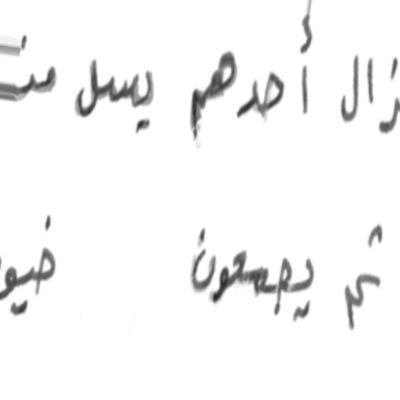 زال أحدهم يسل من
ثم يجمعون خيو